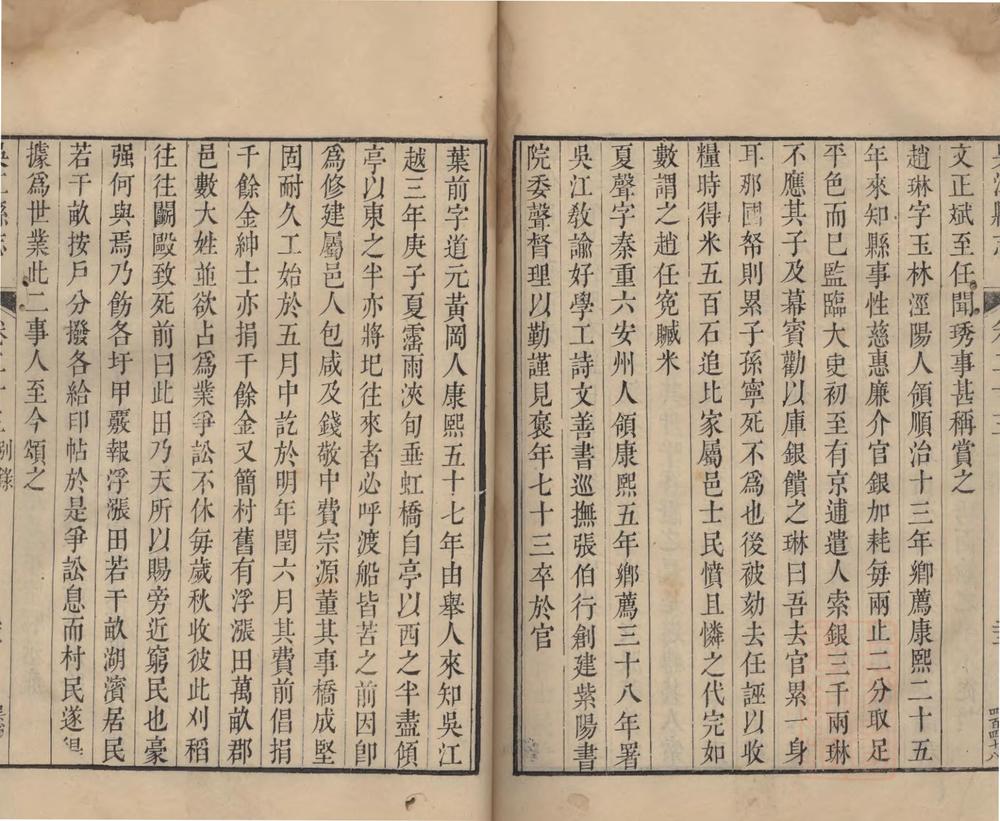 文正斌至任聞琇事甚稱賞之
趙琳字玉林涇陽人領順治十三年鄉薦康熙二十五
年來知縣事性慈惠廉介官銀加耗每兩止二分取足
平色而已監臨大吏初至有京逋遣人索銀三千兩琳
不應其子及幕賓勸以庫銀饋之琳曰吾去官累一身
耳那國帑則累子孫寧死不為也後被劾去任誣以收
糧時得米五百石追比家屬邑士民憤且憐之代完如
數謂之趙任寃贓米
夏聲字秦重六安州人領康熙五年鄉薦三十八年署
吳江教諭好學工詩文善書巡撫張伯行創建紫陽書
院委聲督理以勤謹見褒年七十三卒於官
葉前字道元黃岡人康熙五十七年由舉人來知吳江
越三年庚子夏霪雨浹旬垂虹橋自亭以西之半盡傾
亭以東之半亦將圯往來者必呼渡船皆苦之前因卽
爲修建屬邑人包咸及錢敬中費宗源董其事橋成堅
固耐久工始於五月中訖於明年閏六月其費前倡捐
千餘金紳士亦捐千餘金又簡村舊有浮漲田萬畝郡
邑數大姓並欲占爲業爭訟不休每歲秋收彼此刈稻
往往鬬毆致死前曰此田乃天所以賜旁近窮民也豪
强何與焉乃飭各圩甲覈報浮漲田若干畝湖濱居民
若干畝按戶分撥各給印帖於是爭訟息而村民遂得
據爲世業此二事人至今頌之